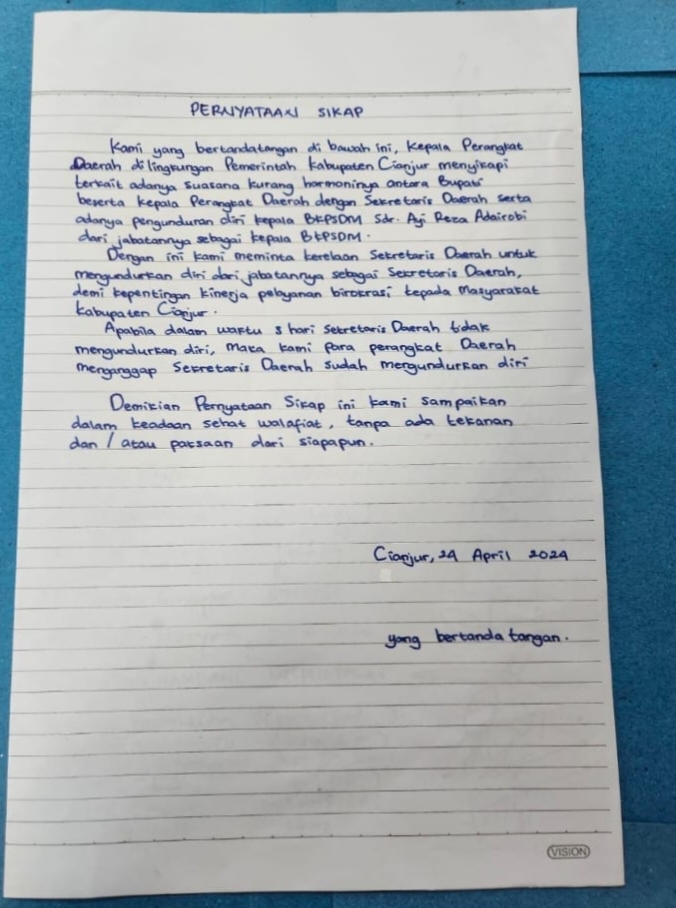 PERNYATAAN SIKAP
Kami yang bertandatangan di bawah ini, Kepala Perangkat
Daerah dilingkungan Pemerintah Kabupaten Cianjur menyikapi
terkait adanya suasana kurang harmoninya antara Bupati
beserta Kepala Perangkat Daerah dengan Sekretaris Daerah serta
adanya pengunduran diri kepala BKPSDM Sdr. Aji Reza Adairobi
dari jabatannya sebagai kepala BKPSDM.
Dengan ini kami meminta kerelaan Sekretaris Daerah untuk
mengundurkan diri dari jabatannya sebagai Sekretaris Daerah,
demi kepentingan kinerja pelayanan birokrasi kepada Masyarakat
Kabupaten Cianjur.
Apabila dalam waktu 3 hari Sekretaris Daerah tidak
mengundurkan diri, maka kami para perangkat Daerah
menganggap Sekretaris Daerah sudah mengundurkan diri
Demikian Pernyataan Sikap ini kami sampaikan
dalam keadaan sehat walafiat, tanpa ada tekanan
dan / atau paksaan dari siapapun.
Cianjur, 24 April 2024
yang bertanda tangan.
VISION